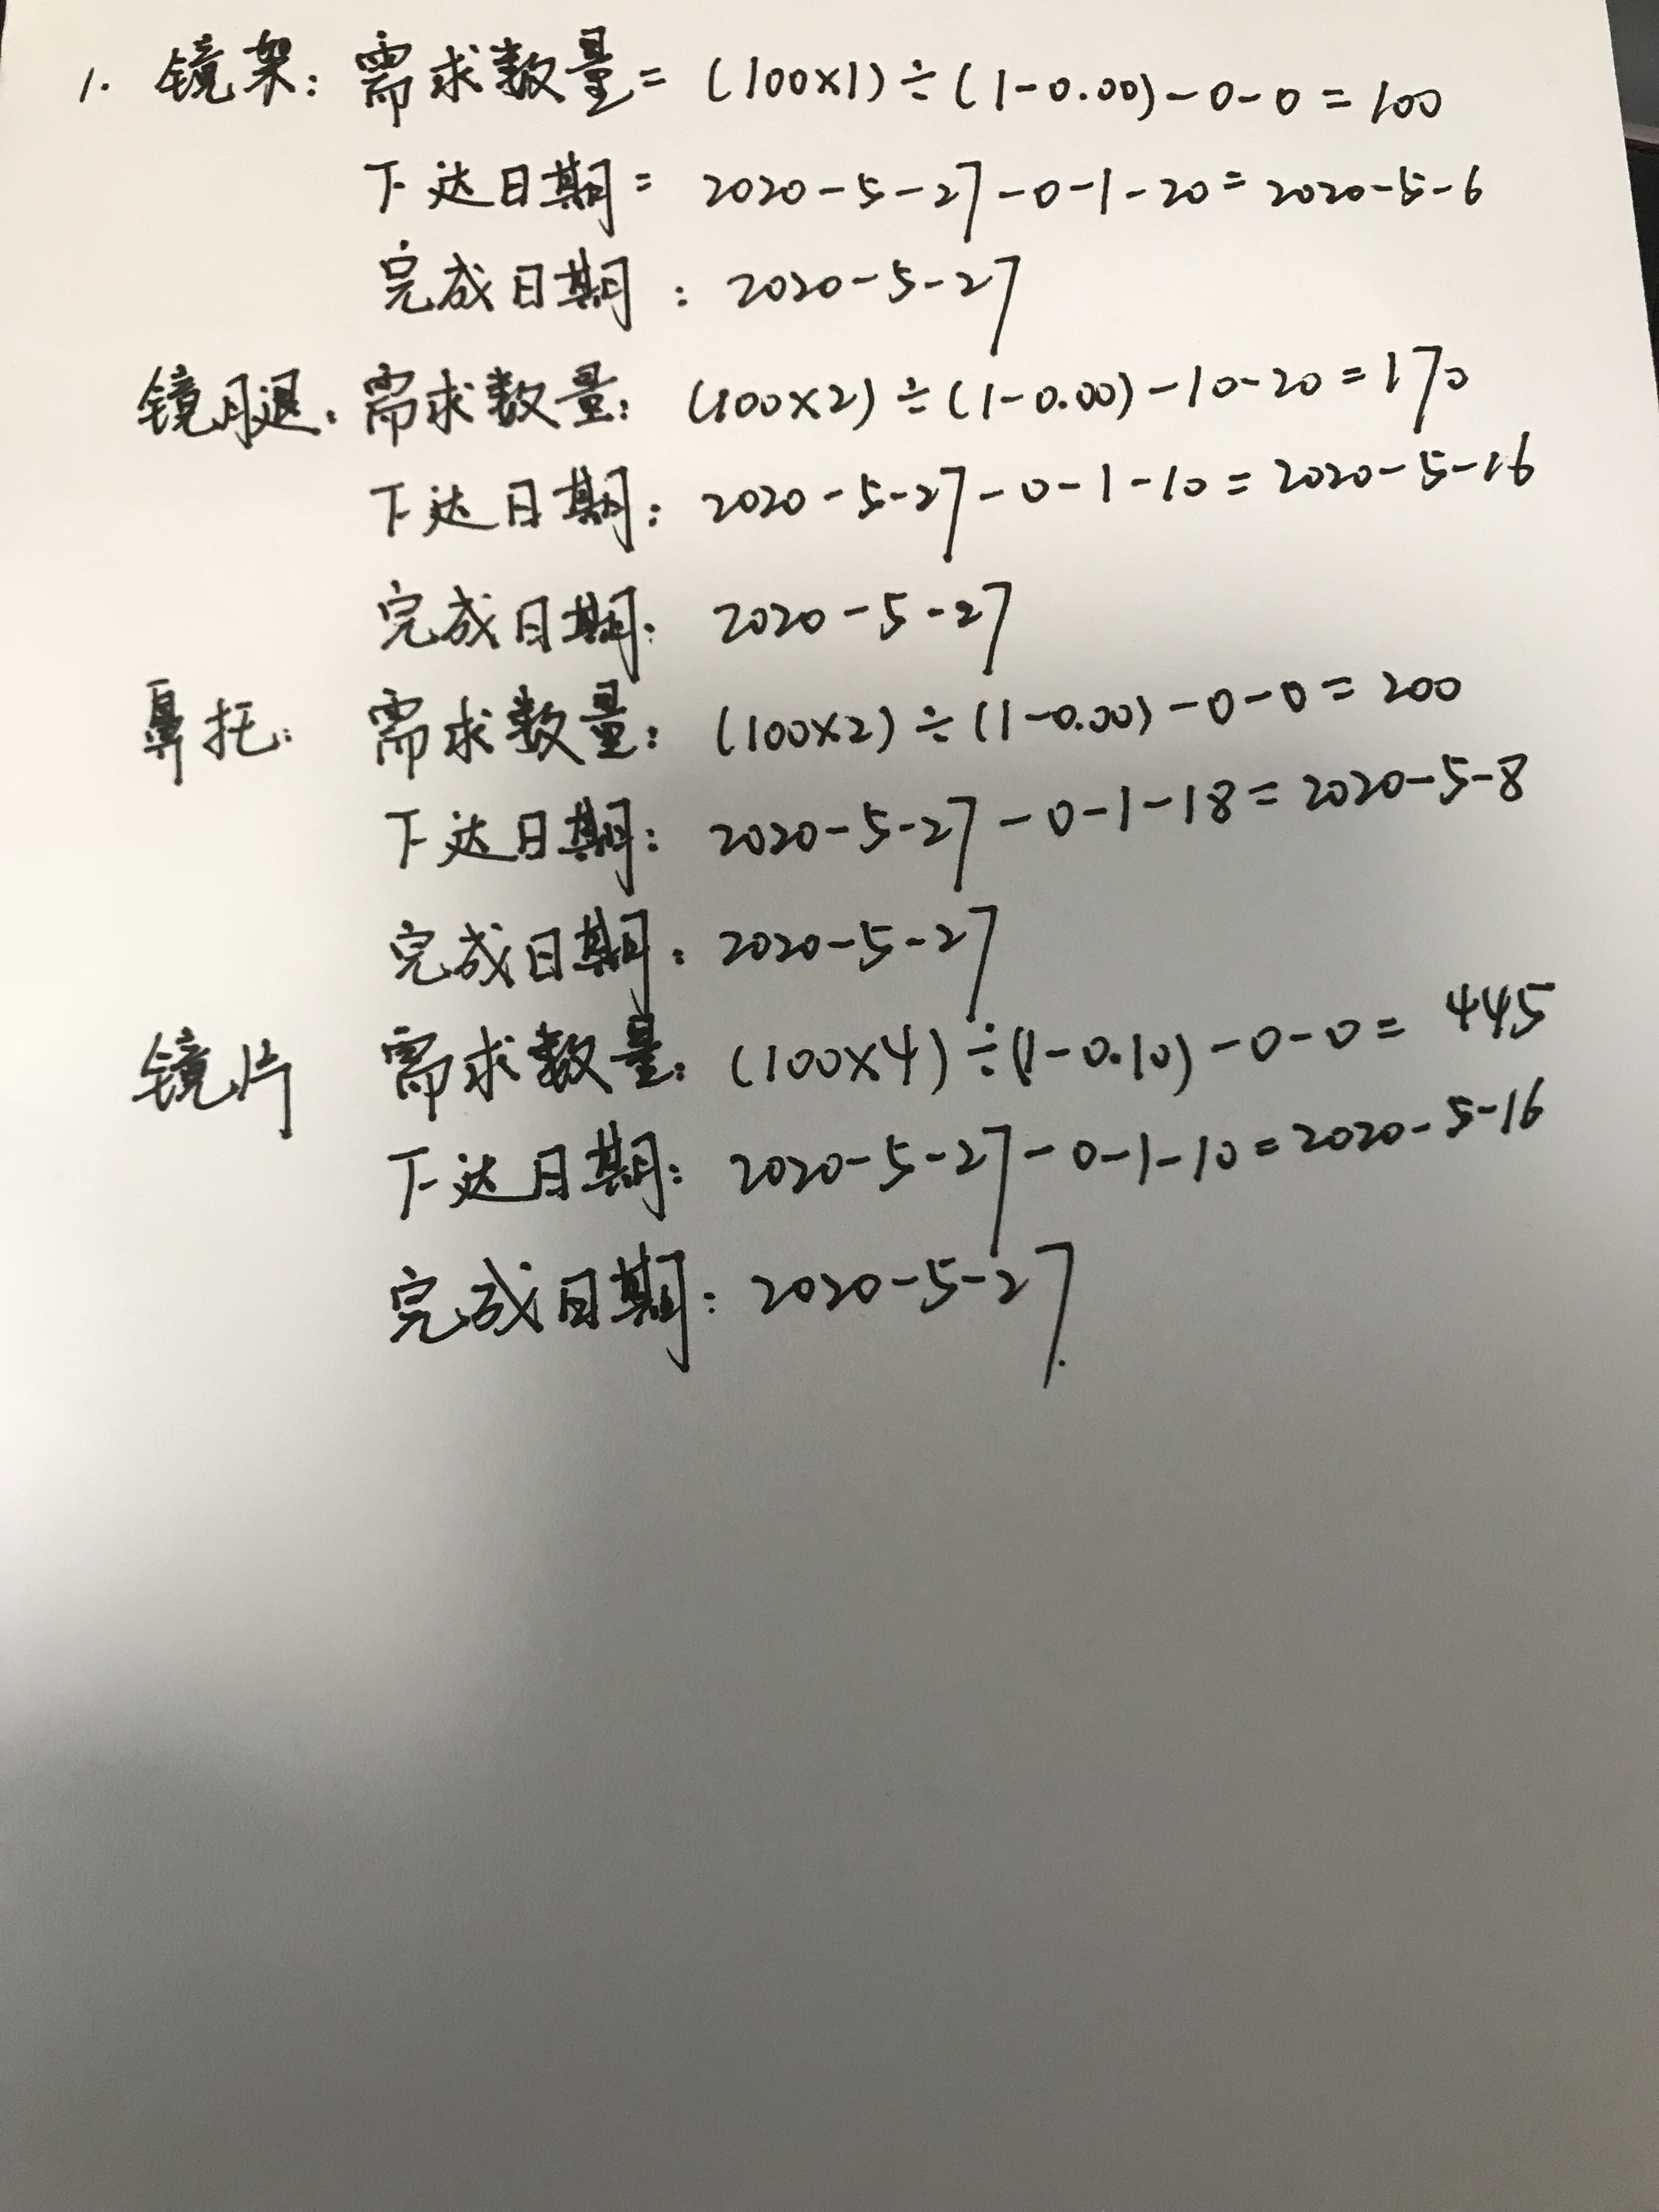 1. 镜架: 需求数量= (100×1)÷(1-0.00)-0-0=100
下达日期= 2020-5-27-0-1-20=2020-5-6
完成日期: 2020-5-27
镜腿: 需求数量: (100×2)÷(1-0.00)-10-20=170
下达日期: 2020-5-27-0-1-10=2020-5-16
完成日期: 2020-5-27
鼻托: 需求数量: (100×2)÷(1-0.00)-0-0=200
下达日期: 2020-5-27-0-1-18=2020-5-8
完成日期: 2020-5-27
镜片 需求数量: (100×4)÷(1-0.10)-0-0= 445
下达日期: 2020-5-27-0-1-10=2020-5-16
完成日期: 2020-5-27.